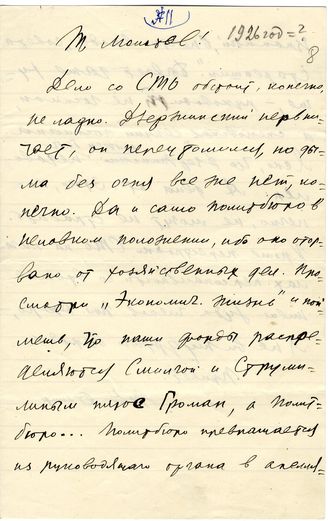 № 11
1926 год = ?
8
Т. Молотов!
Дело со СТО обстоит, конечно,
не ладно. Дзержинский нервни-
чает, он переутомился, но ды-
ма без огня все же нет, ко-
нечно. Да и само политбюро в
неловком положении, ибо оно отор-
вано от хозяйственных дел. Про-
смотри „Экономич. Жизнь" и пой-
мешь, что наши фонды распре-
деляются Смилгой и Струми-
линым плюс Громан, а Полит-
бюро... Политбюро превращается
из руководящего органа в апелля-